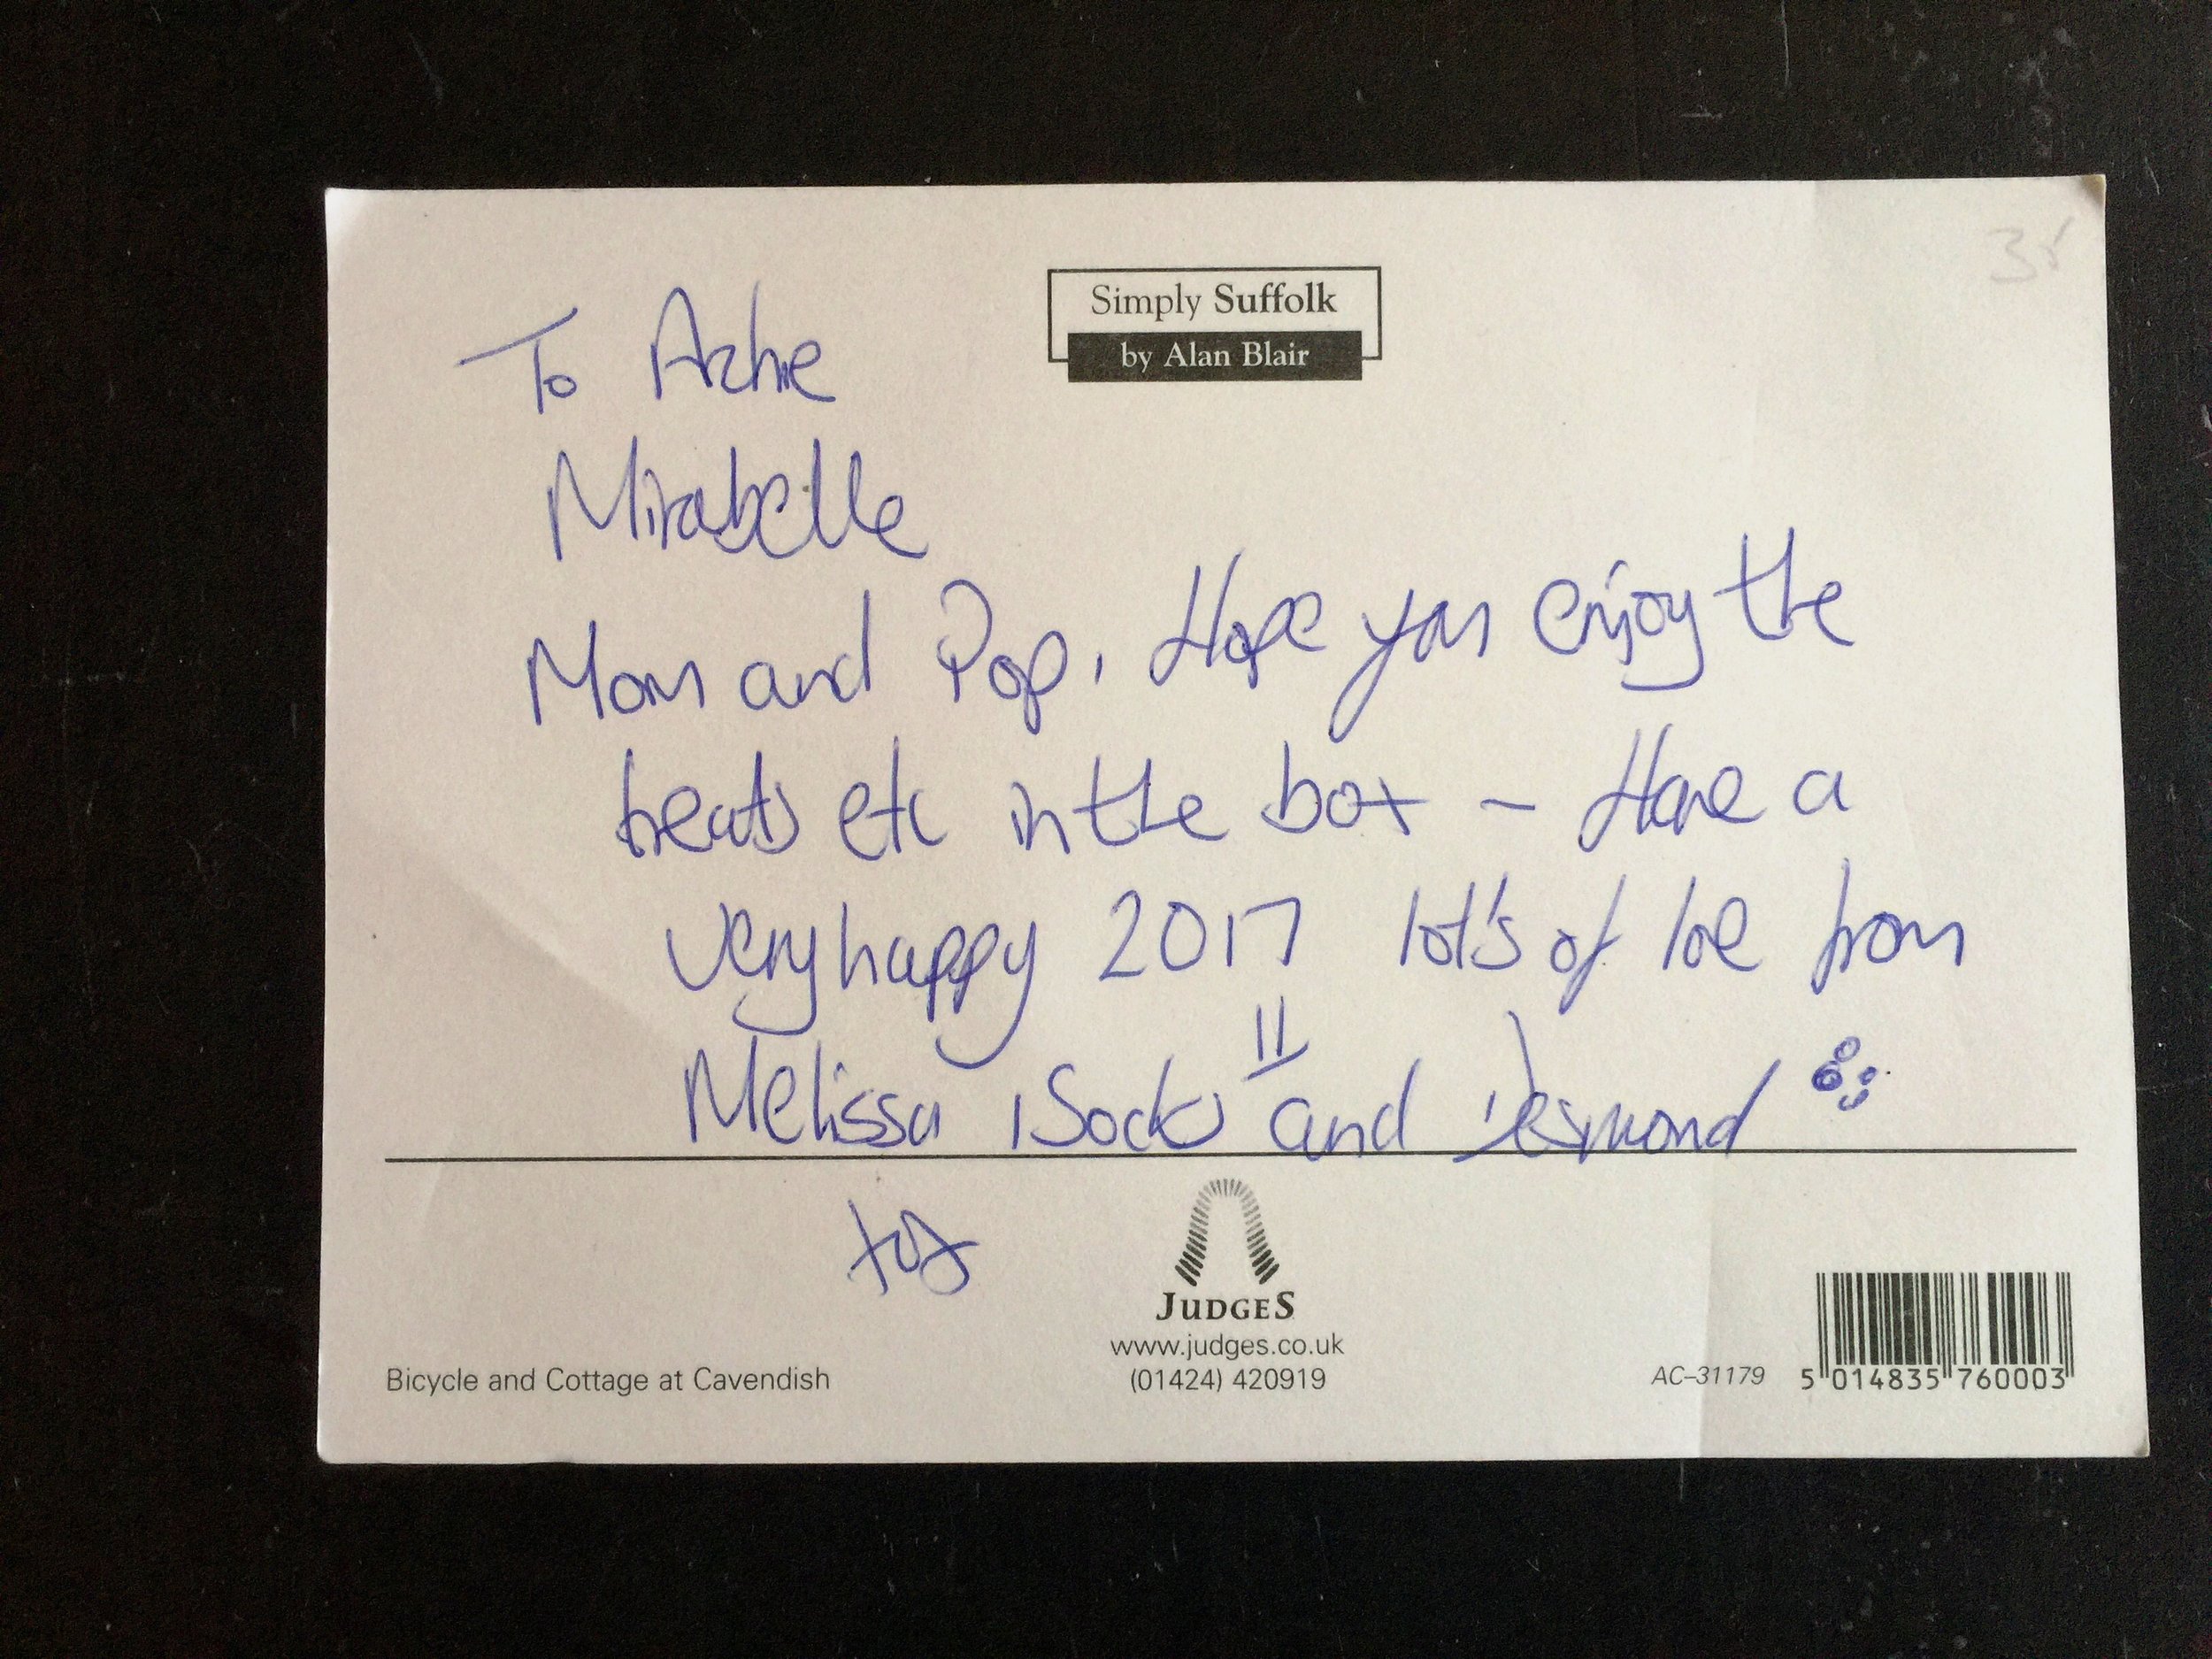 Simply Suffolk
by Alan Blair
To Archie
Mirabelle
Mom and Pop, Hope you enjoy the
treats etc in the box – Have a
very happy 2017 lot's of love from
Melissa, Socks and Desmond
xox
JUDGES
www.judges.co.uk
(01424) 420919
Bicycle and Cottage at Cavendish
AC–31179
5 014835 760003